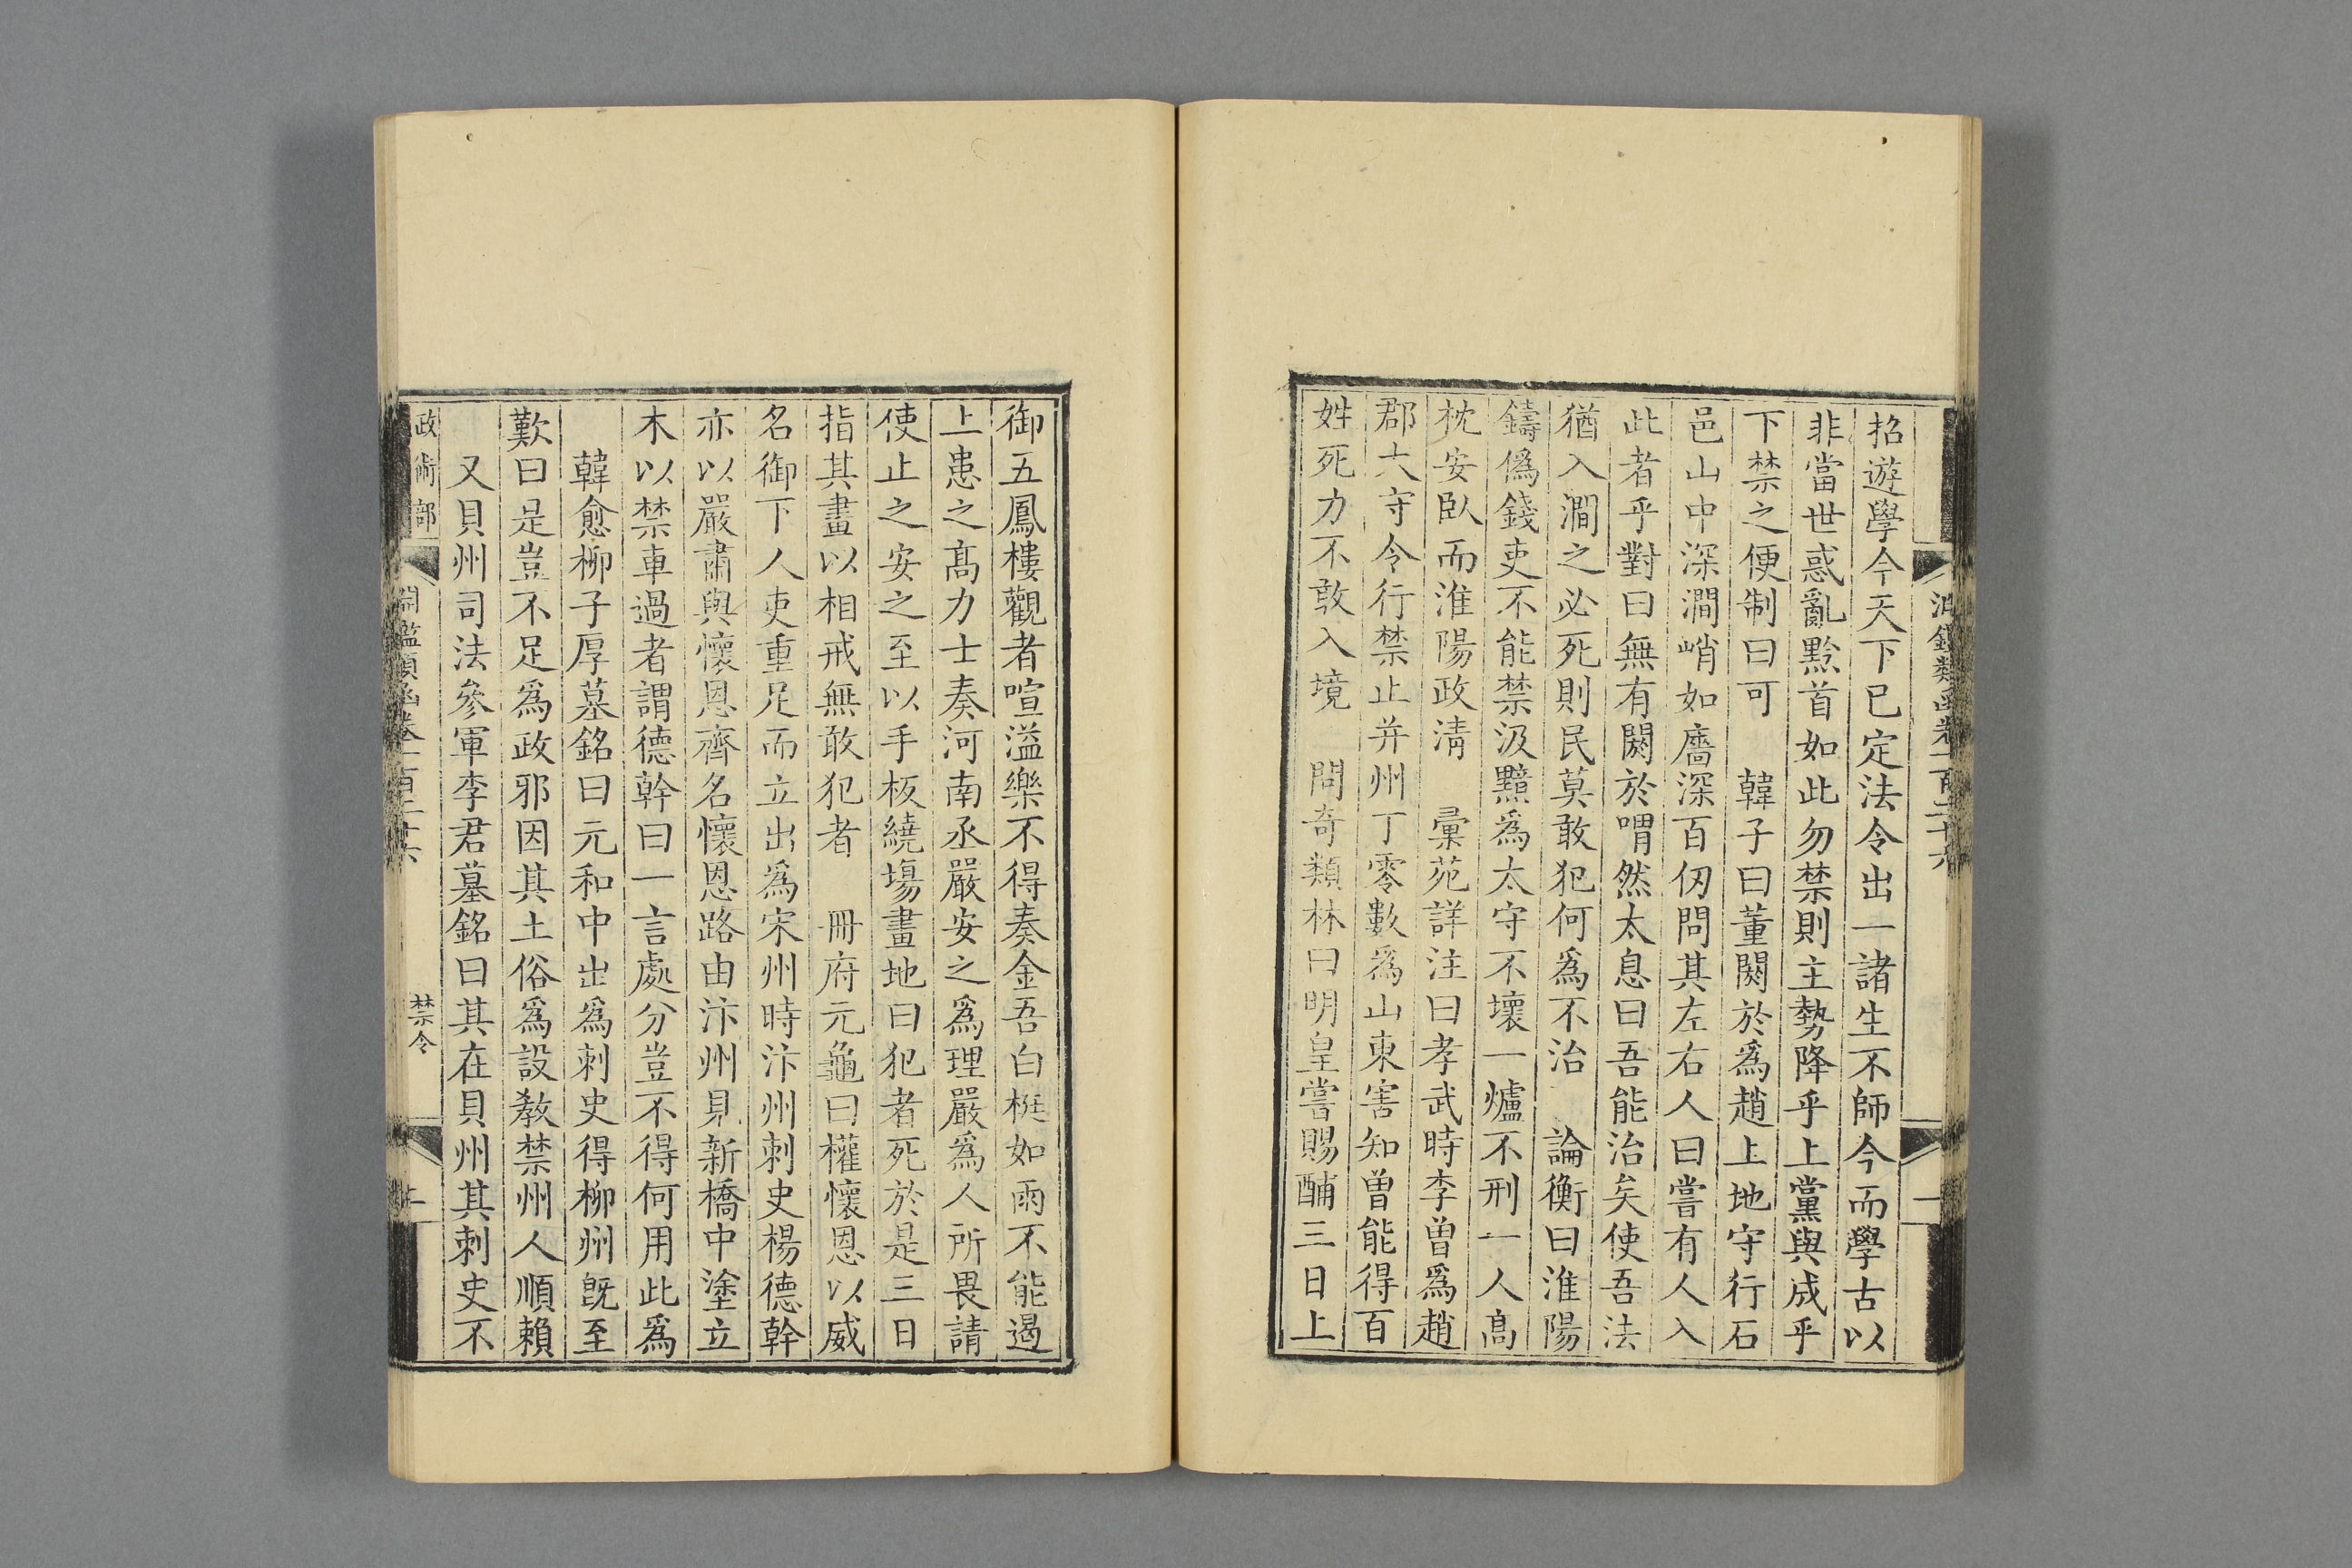 淵鑑類函卷一百二十六
招遊學今天下已定法令出一諸生不師今而學古以
非當世惑亂黔首如此勿禁則主勢降乎上黨與成乎
下禁之便制曰可　韓子曰董閼於爲趙上地守行石
邑山中深澗峭如牆深百仭問其左右人曰嘗有人入
此者乎對曰無有閼於喟然太息曰吾能治矣使吾法
猶入澗之必死則民莫敢犯何爲不治　論衡曰淮陽
鑄僞錢吏不能禁汲黯爲太守不壞一爐不刑一人高
枕安臥而淮陽政淸　彙苑詳注曰孝武時李曾爲趙
郡大守令行禁止并州丁零數爲山東害知曾能得百
姓死力不敢入境　問奇類林曰明皇嘗賜酺三日上
御五鳳樓觀者喧溢樂不得奏金吾白梃如雨不能遏
上患之高力士奏河南丞嚴安之爲理嚴爲人所畏請
使止之安之至以手板繞場畫地曰犯者死於是三日
指其畫以相戒無敢犯者　冊府元龜曰權懷恩以威
名御下人吏重足而立出爲宋州時汴州刺史楊德幹
亦以嚴肅與懷恩齊名懷恩路由汴州見新橋中塗立
木以禁車過者謂德幹曰一言處分豈不得何用此爲
韓愈柳子厚墓銘曰元和中出爲刺史得柳州旣至
歎曰是豈不足爲政邪因其土俗爲設敎禁州人順賴
又貝州司法參軍李君墓銘曰其在貝州其刺史不
政術部
淵鑑類函卷一百二十六
禁令